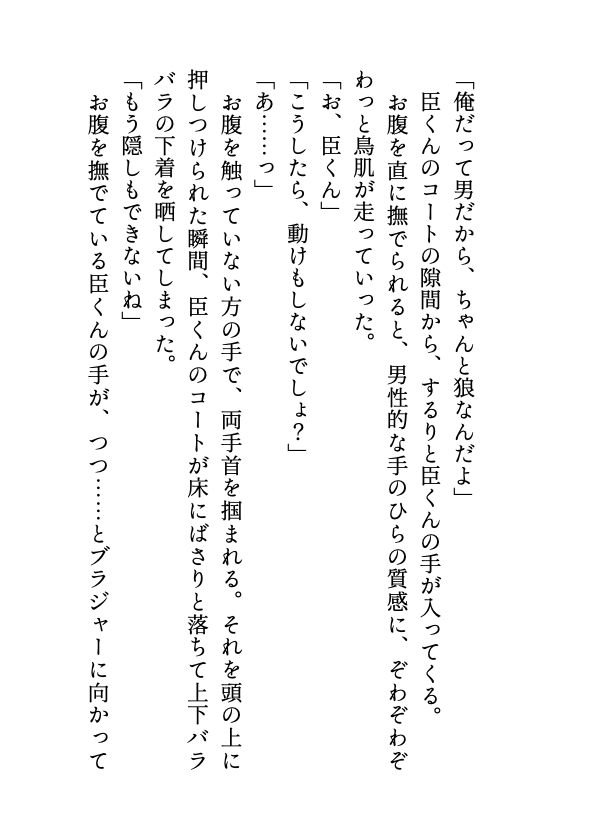 「俺だって男だから、ちゃんと狼なんだよ」
臣くんのコートの隙間から、するりと臣くんの手が入ってくる。
お腹を直に撫でられると、男性的な手のひらの質感に、ぞわぞわぞ
わっと鳥肌が走っていった。
「お、臣くん」
「こうしたら、動けもしないでしょ？」
「あ……っ」
お腹を触っていない方の手で、両手首を掴まれる。それを頭の上に
押しつけられた瞬間、臣くんのコートが床にばさりと落ちて上下バラ
バラの下着を晒してしまった。
「もう隠しもできないね」
お腹を撫でている臣くんの手が、つつ……とブラジャーに向かって